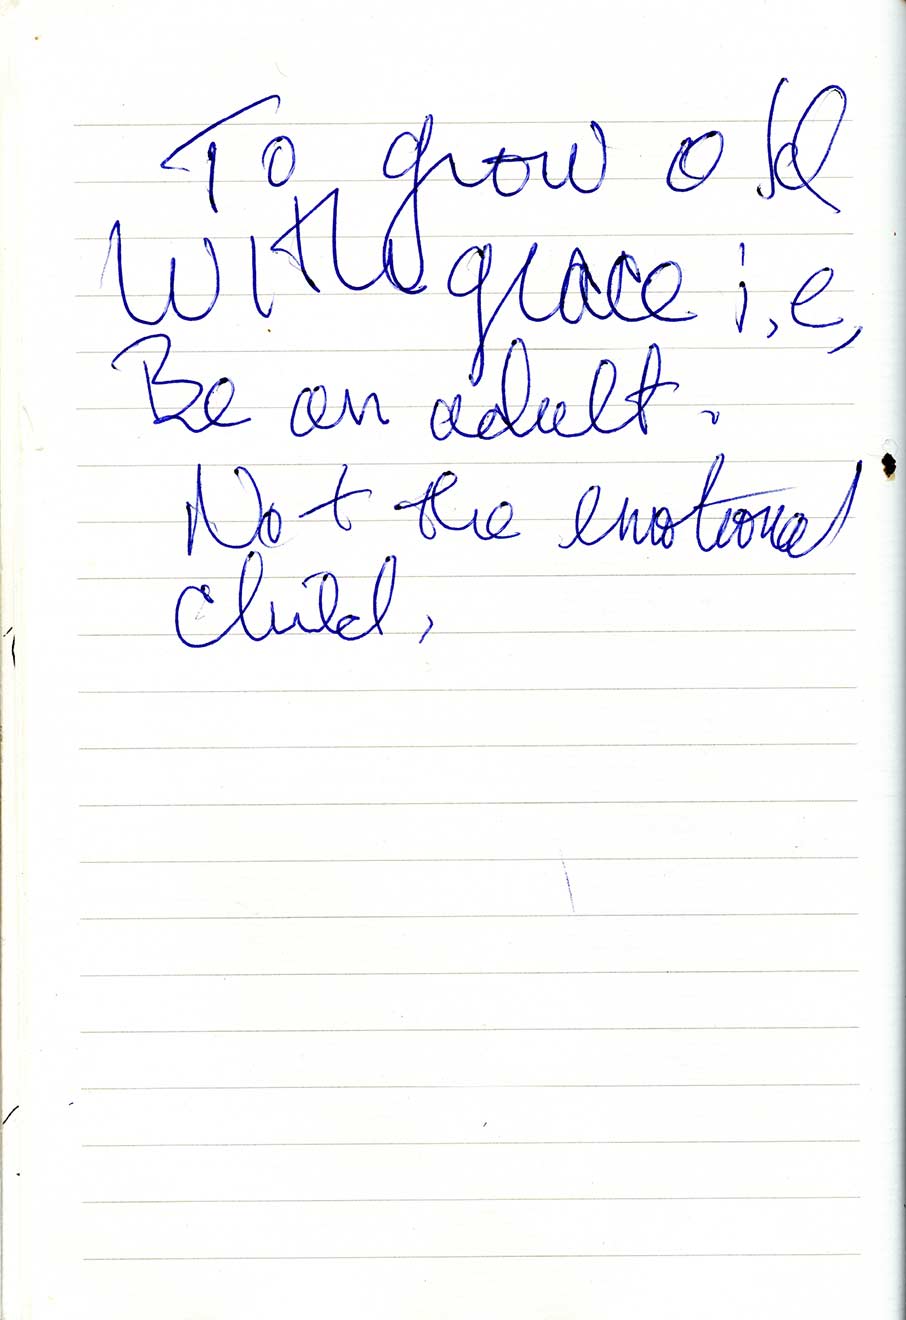 To grow old
With grace i,e,
Be an adult.
Not the emotional
child,